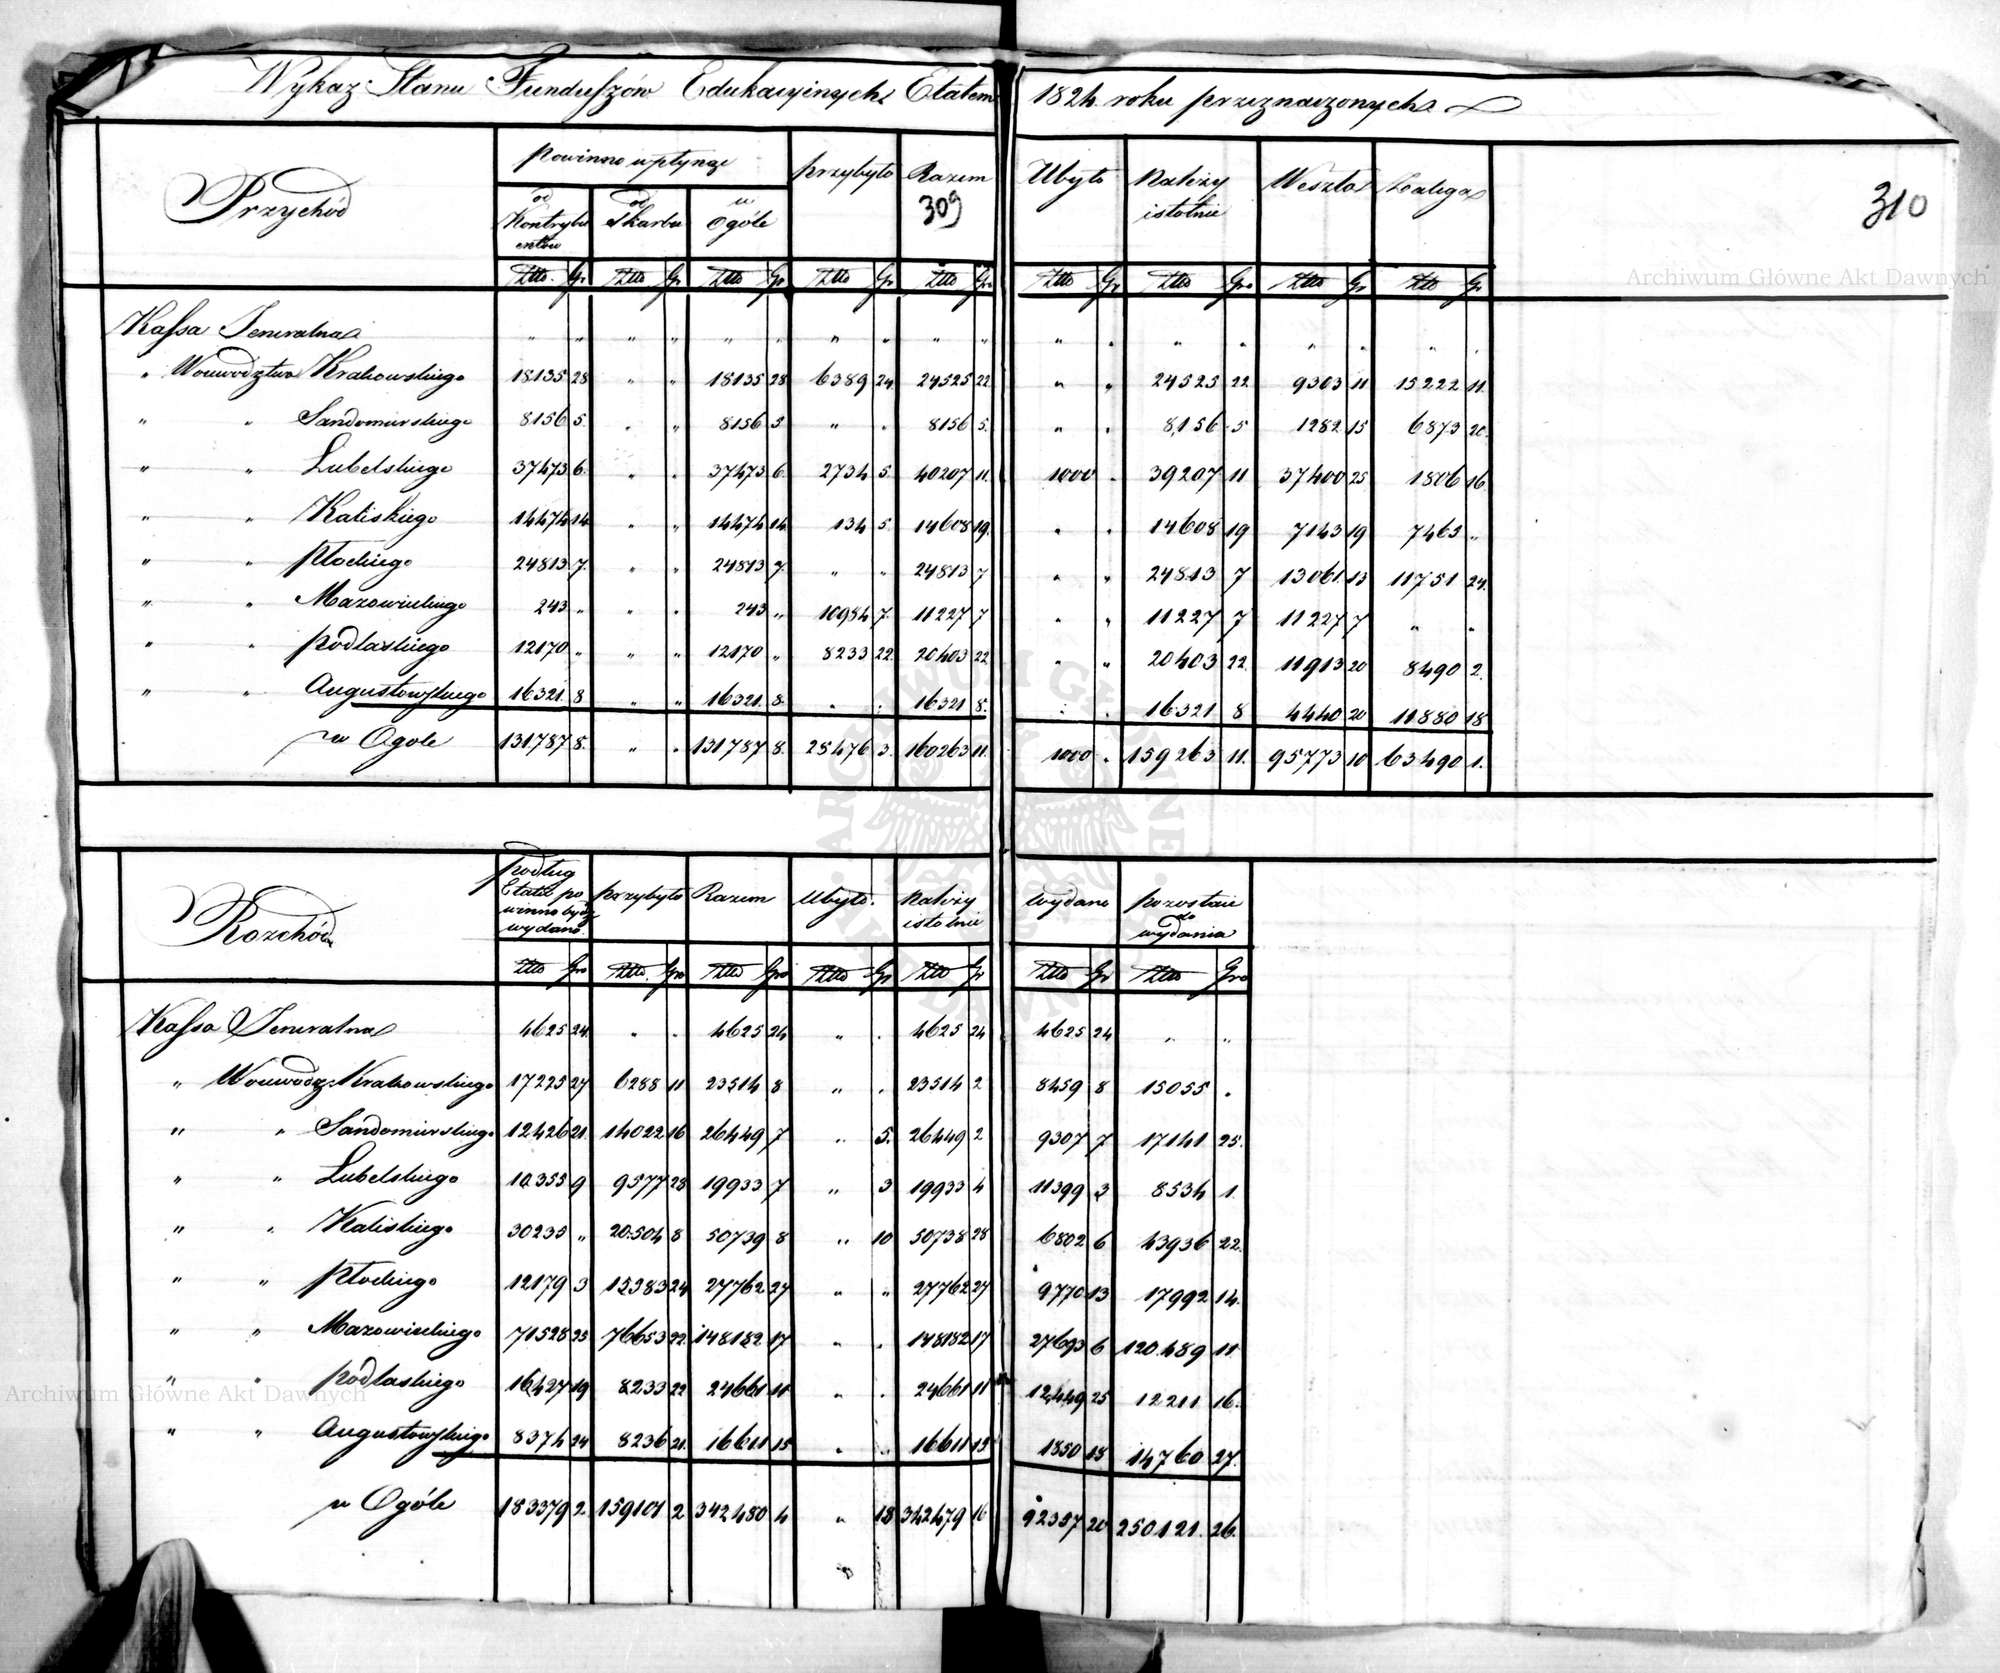 Wykaz Stanu Funduszów Edukacyinych Etatem 1824 roku przeznaczonych
309
310
Przychód | powinno wpłynąć od Kontrybuentów | od Skarbu | w Ogóle | przybyło | Razem | Ubyło | Należy istotnie | Weszło | Zalega
Złto. Gr | Złto Gr | Złto Gr | Złto Gr | Złto Gro | Złto Gr | Złto Gro | Złto Gr | Złto Gr
Kassa Jeneralna " " " " " " " " " " " " " " " " " "
" Woiewództwa Krakowskiego 18135 28 " " 18135 28 6389 24 24525 22 " " 24525 22 9303 11 15222 11
" " Sandomirskiego 8156 5 " " 8156 5 " " 8156 5 " " 8156 5 1282 15 6873 20
" " Lubelskiego 37473 6 " " 37473 6 2734 5 40207 11 1000 " 39207 11 37400 25 1806 16
" " Kaliskiego 14474 14 " " 14474 14 134 5 14608 19 " " 14608 19 7143 19 7465 "
" " płockiego 24813 7 " " 24813 7 " " 24813 7 " " 24813 7 13061 13 11751 24
" " Mazowieckiego 243 " " " 243 " 10984 7 11227 7 " " 11227 7 11227 7 " "
" " podlaskiego 12170 " " " 12170 " 8233 22 20403 22 " " 20403 22 11913 20 8490 2
" " Augustowskiego 16321 8 " " 16321 8 " " 16321 8 " " 16321 8 4440 20 11880 18
w Ogole 131787 8 " " 131787 8 28476 3 160263 11 1000 " 159263 11 95773 10 63490 1
Rozchód | podług Etatu powinno bydź wydano | przybyło | Razem | Ubyło | Należy istotnie | wydano | pozostaie do wydania
Złto Gro | Złto. Gro | Złto Gro | Złto Gr | Złto Gr | Złto Gr | Złto Gro
Kassa Jeneralna 4625 24 " " 4625 24 " " 4625 24 4625 24 " "
" Woiewódz. Krakowskiego 17225 27 6288 11 23514 8 " " 23514 2 8459 8 15055 "
" " Sandomirskiego 12426 21 14022 16 26449 7 " 5 26449 2 9307 7 17141 25
" " Lubelskiego 10355 9 9577 28 19933 7 " 3 19933 4 11399 3 8534 1
" " Kaliskiego 30235 " 20504 8 50739 8 " 10 50738 28 6802 6 43936 22
" " płockiego 12179 3 15383 24 27762 27 " " 27762 27 9770 13 17992 14
" " Mazowieckiego 71528 25 76653 22 148182 17 " " 148182 17 27693 6 120489 11
" " podlaskiego 16427 19 8233 22 24661 11 " " 24661 11 12449 25 12211 16
" " Augustowskiego 8374 24 8236 21 16611 15 " " 16611 15 1850 18 14760 27
w Ogóle 183379 2 159101 2 342480 4 " 18 342479 16 92357 20 250121 26
Archiwum Główne Akt Dawnych
Archiwum Główne Akt Dawnych
ARCHIWUM GŁÓWNE AKT DAWNYCH